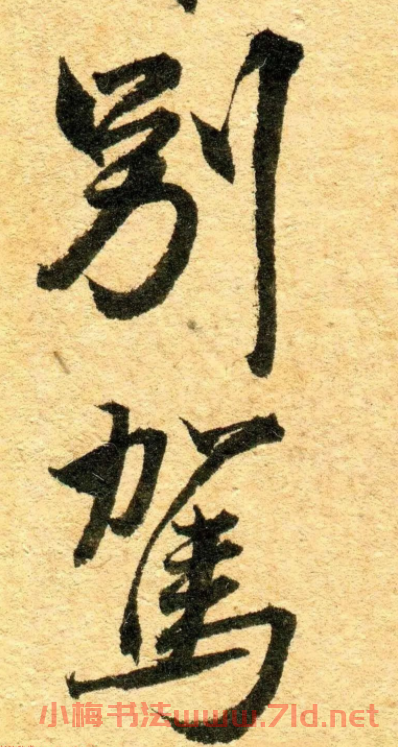 別駕
小梅书法www.7ld.net